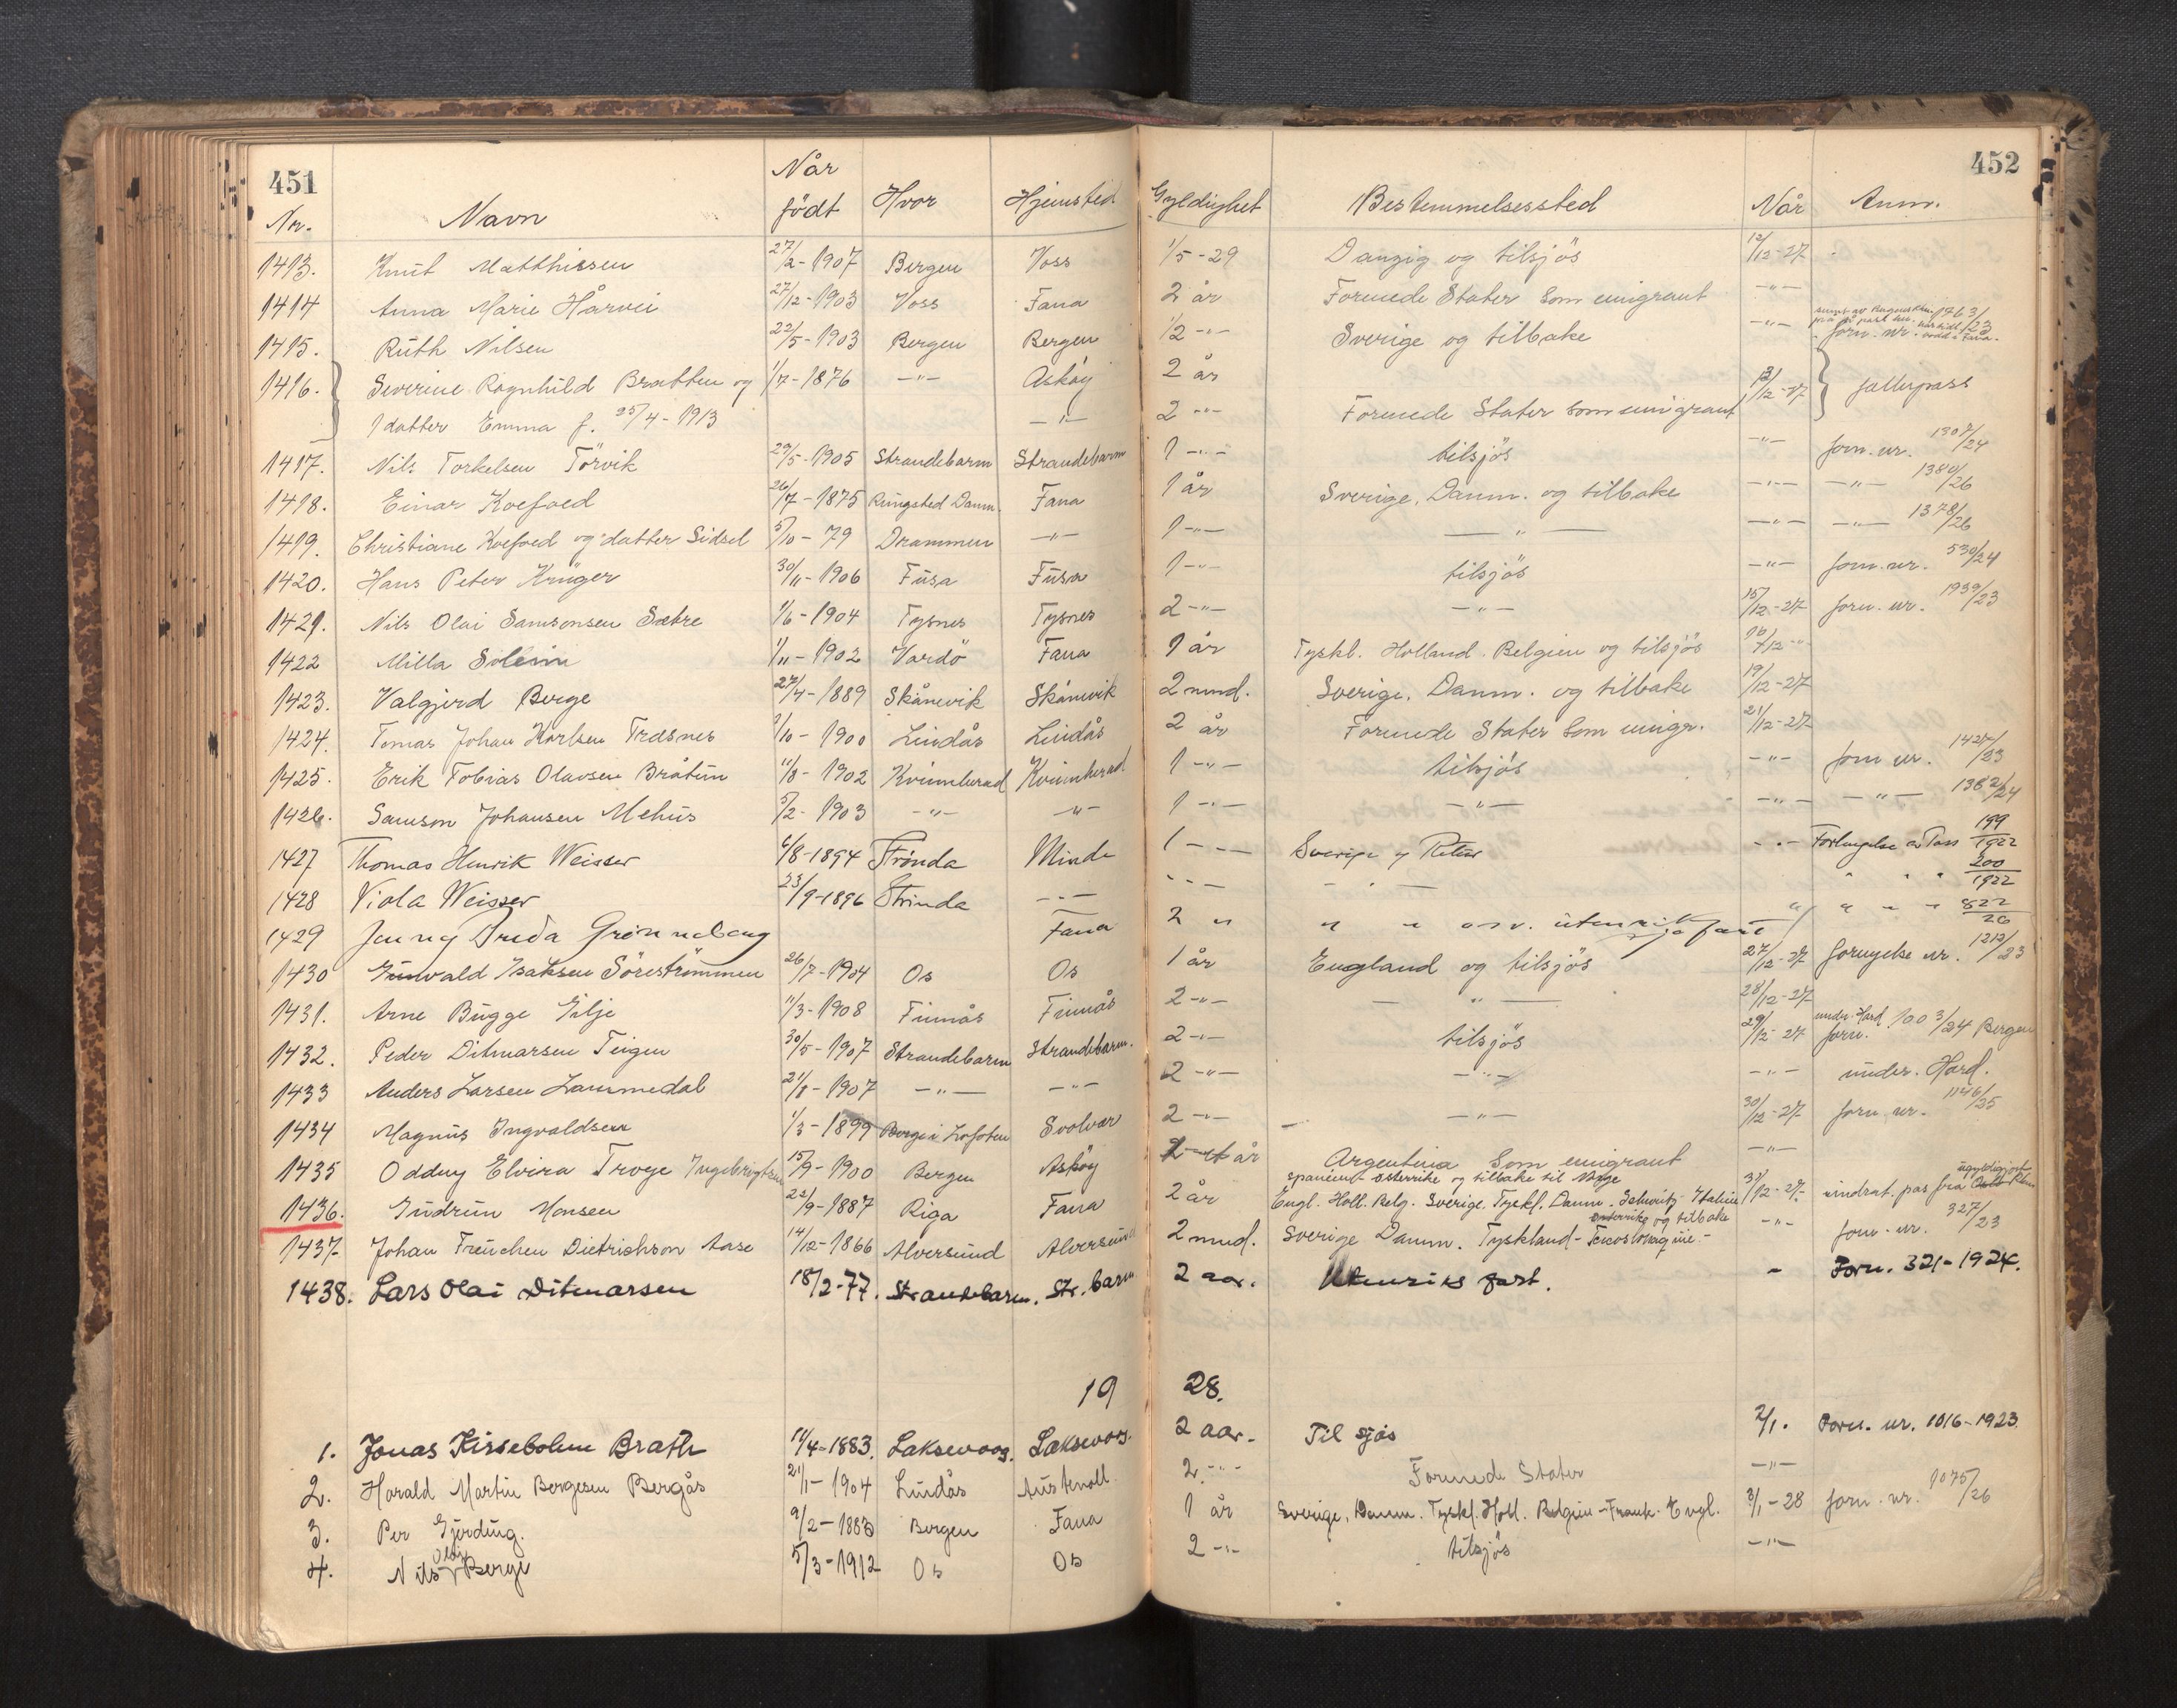 451
452
Nr. Navn Når födt Hvor Hjemsted Gyldighet Bestemmelsessted Når Anm.
1413. Knut Matthiessen 27/2-1907 Bergen Voss 1/5-29 Danzig og tilsjös 12/12-27
1414 Anna Marie Hårvei 27/12-1903 Voss Fana 2 år Forenede Stater som emigrant -"-
1415. Ruth Nilsen 22/5-1903 Bergen Bergen 1/2 -"- Sverige og tilbake -"- forn. nr. 1763/23
1416. Severine Ragnhild Bratten og 1/7-1876 -"- Askøy 2 år
1 datter Emma f. 25/4-1913 -"- 2 -"- Forenede Stater som emigrant 13/12-27 fellespass
1417. Nils Torkelsen Törvik 29/5-1905 Strandebarm Strandebarm 1 -"- tilsjös -"- forn. nr. 1307/24
1418. Einar Koefoed 26/7-1875 Ringsted Danm. Fana 1 år Sverige, Danm. og tilbake -"- -"- 1380/26
1419. Christiane Koefoed og datter Sidsel 5/10-79 Drammen -"- 1 -"- -"- -"- -"- 1378/26
1420. Hans Peter Krüger 30/11-1906 Fusa Fusa 1 -"- tilsjös -"- forn. nr. 530/24
1421. Nils Olai Samsonsen Sætre 1/6-1904 Tysnes Tysnes 2 -"- -"- 15/12-27 forn. nr. 1939/23
1422 Milla Soleim 1/11-1902 Vardö Fana 1 år Tyskl. Holland. Belgien og tilsjös 16/12-"-
1423. Valgjerd Berge 27/4-1889 Skånevik Skånevik 2 mnd. Sverige, Danm. og tilbake 19/12-27
1424. Tomas Johan Karlsen Træsnes 1/10-1900 Lindås Lindås 2 år Forenede Stater som emigr. 21/12-27
1425. Erik Tobias Olavsen Bråtun 11/8-1902 Kvinnherad Kvinnherad 1 -"- tilsjös -"- forn nr. 1427/23
1426. Samson Johansen Mehus 5/2-1903 -"- -"- 1 -"- -"- -"- -"- 1382/24
1427 Thomas Henrik Weisser 6/8-1894 Trönda Minde 1 -"- Sverige og Retur -"- Forlengelse av Pass 199/1922
1428 Viola Weisser 23/9-1896 Strinda -"- -"- -"- " " " 200/1922
1429 Jenny Freda Grönneberg Fana 2 " " " osv. utenriksfart " " " " 822/26
1430 Gunvald Isaksen Sörestrømmen 26/7-1904 Os Os 1 år England og tilsjös 27/12-27 fornyelse nr. 1212/23
1431. Arne Bugge Gilje 11/3-1908 Finnås Finnås 2 -"- -"- 28/12-27
1432. Peder Ditmarsen Teigen 30/5-1907 Strandebarm Strandebarm. 2 -"- tilsjös 29/12-27 under. Hard. forn. 1003/24 Bergen
1433 Anders Larsen Lammedal 21/8-1907 -"- -"- 2 -"- -"- -"- under. Hard.
1434 Magnus Ingvaldsen 1/3-1899 Borge i Lofoten Svolvær 2 -"- -"- 30/12-27 forn nr. 1146/25
1435 Oddny Elvira Troye Ingebrigtsen 15/9-1900 Bergen Askøy 2 år Argentina som emigrant -"-
1436. Gudrun Monsen 22/9-1887 Riga Fana 2 år Spanien - Österrike og tilbake til Norge
Engl. Holl. Belg. Sverige, Tyskl. Danm. Schweitz. Italien 31/12-27. inndrat. pas fra ugyldigjort
1437. Johan Treuchen Dietrichson Aase 14/12-1866 Alversund Alversund 2 mnd. Sverige Danm. Tyskland - österrike og tilbake -"- forn. nr. 327/23
1438. Lars Olai Ditmarsen 18/2-77. Strandebarm. Str.barm 2 aar. Utenriks fart. - Forn. 321-1924.
19 28.
1. Jonas Kirsebohm Brath 11/4-1883. Laksevaag. Laksevaag. 2 aar. Til sjøs 2/1. Forn. nr. 1016-1923
2. Harald Martin Borgesen Bergås 21/1-1904 Lindås Austevoll 2 -"- Forenede Stater -"-
3. Per Gjerding. 9/2-1883 Bergen Fana 1 år Sverige, Danm. Tyskl. Holl. Belgien - Frank. Engl. 3/1-28 forn. nr. 1075/26
4. Nils Olai Berge 5/3-1912 Os Os 2 -"- tilsjös -"-